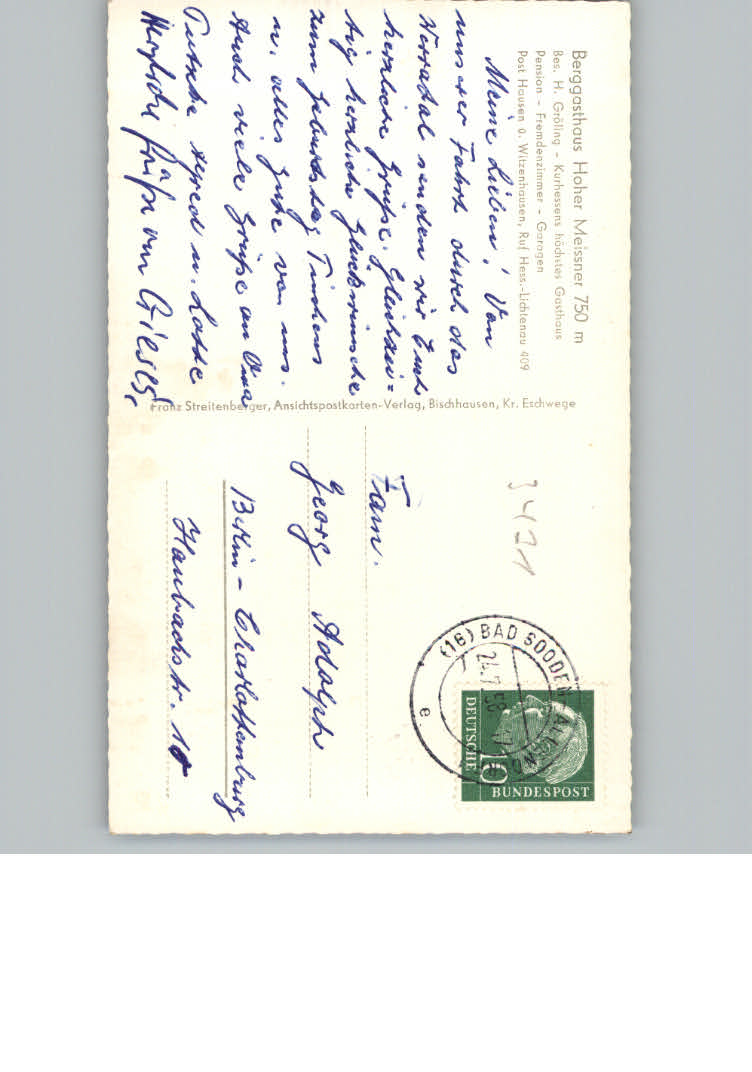 Berggasthaus Hoher Meissner 750 m
Bes. H. Gröling - Kurhessens höchstes Gasthaus
Pension - Fremdenzimmer - Garagen
Post Hausen ü. Witzenhausen, Ruf Hess.-Lichtenau 409
Meine Lieben! Von
unserer Fahrt durch das
Werratal senden wir Euch
herzliche Grüße. Gleichzei=
tig herzliche Glückwünsche
zum Geburtstag Tinchens
u. alles Gute von uns.
Auch viele Grüße an Oma
u. Lotte
Herzliche Grüße von
Franz Streitenberger, Ansichtspostkarten-Verlag, Bischhausen, Kr. Eschwege
3431
Fam.
Georg Adolph
Berlin-Charlottenburg
Haubachstr. 18
(16) BAD SOODEN-ALLENDORF
24.7.58
e
DEUTSCHE
10
BUNDESPOST